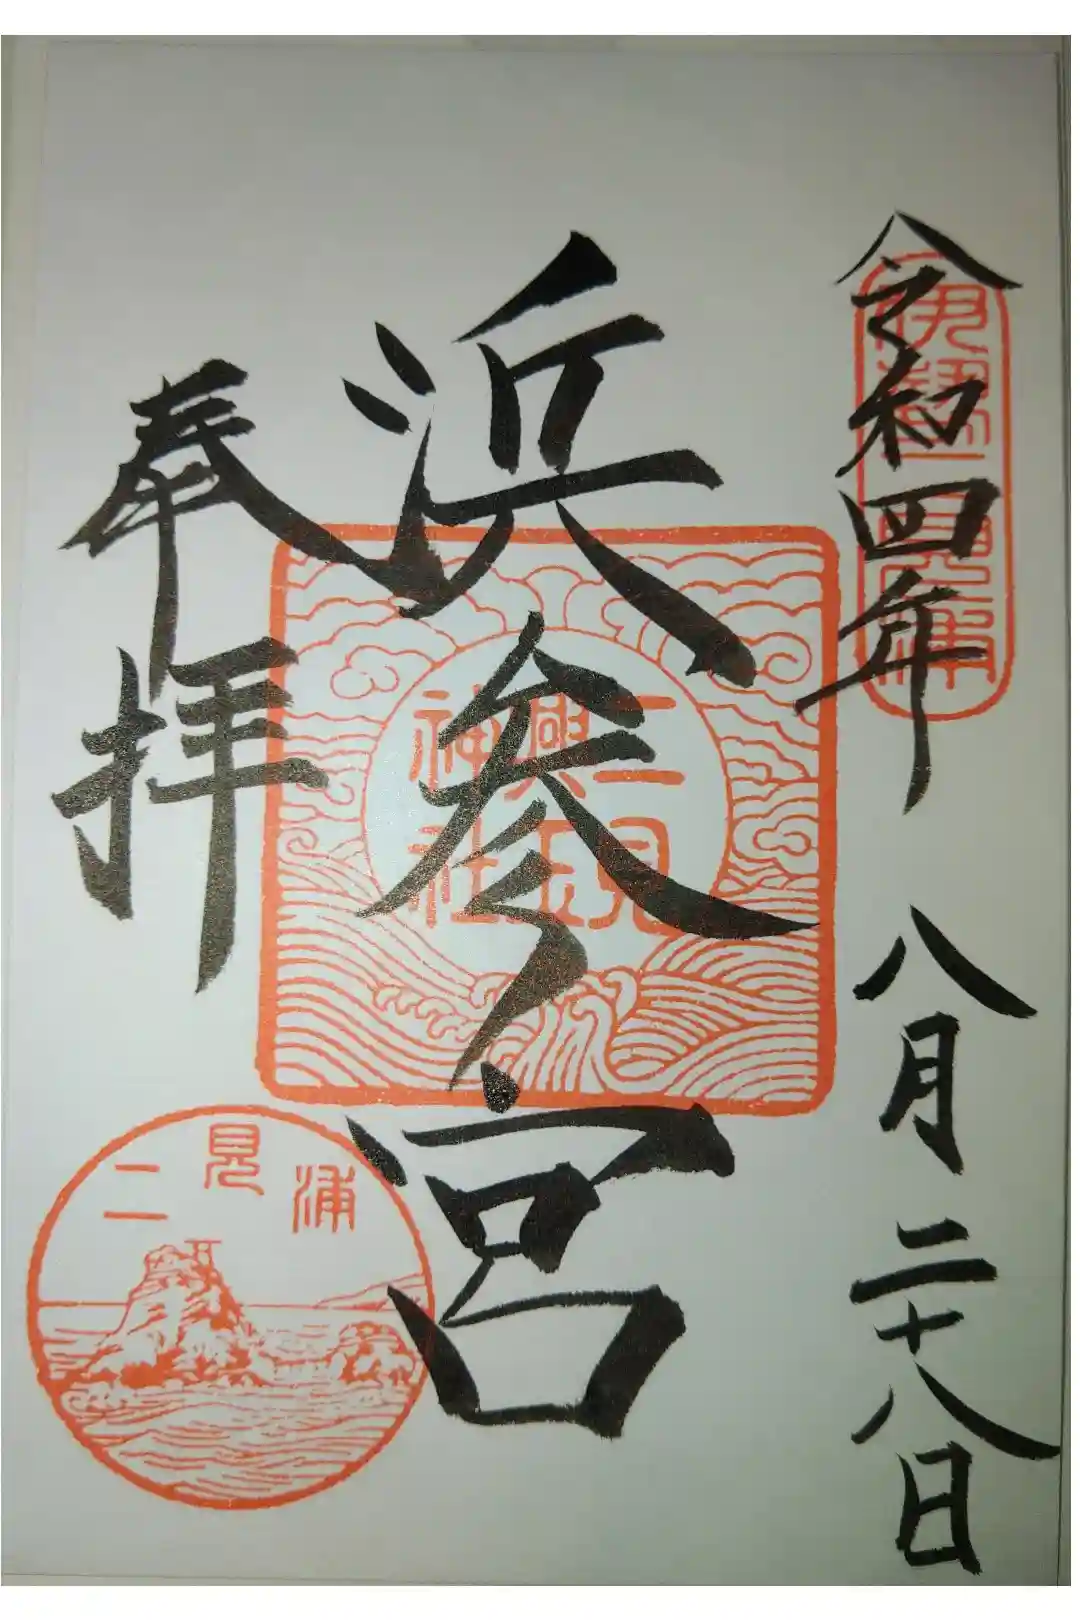 令和四年八月二十八日
伊勢二見浦
浜参宮
二見
興玉
神社
奉拝
二見浦